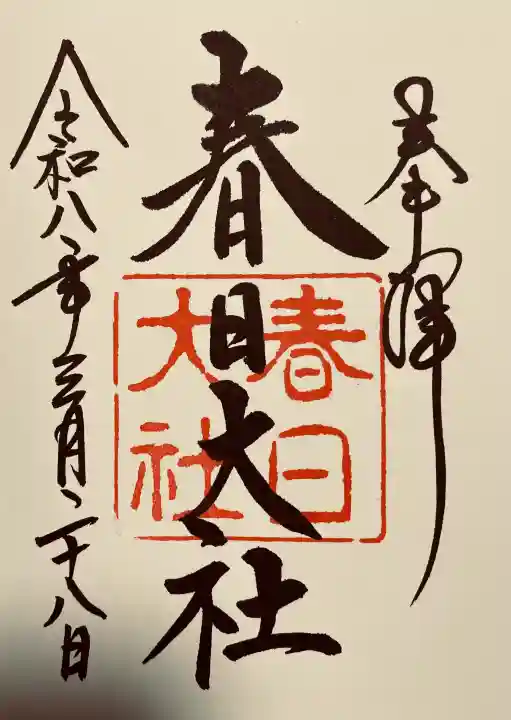 奉拝
春日大社
春日
大社
令和八年三月二十八日